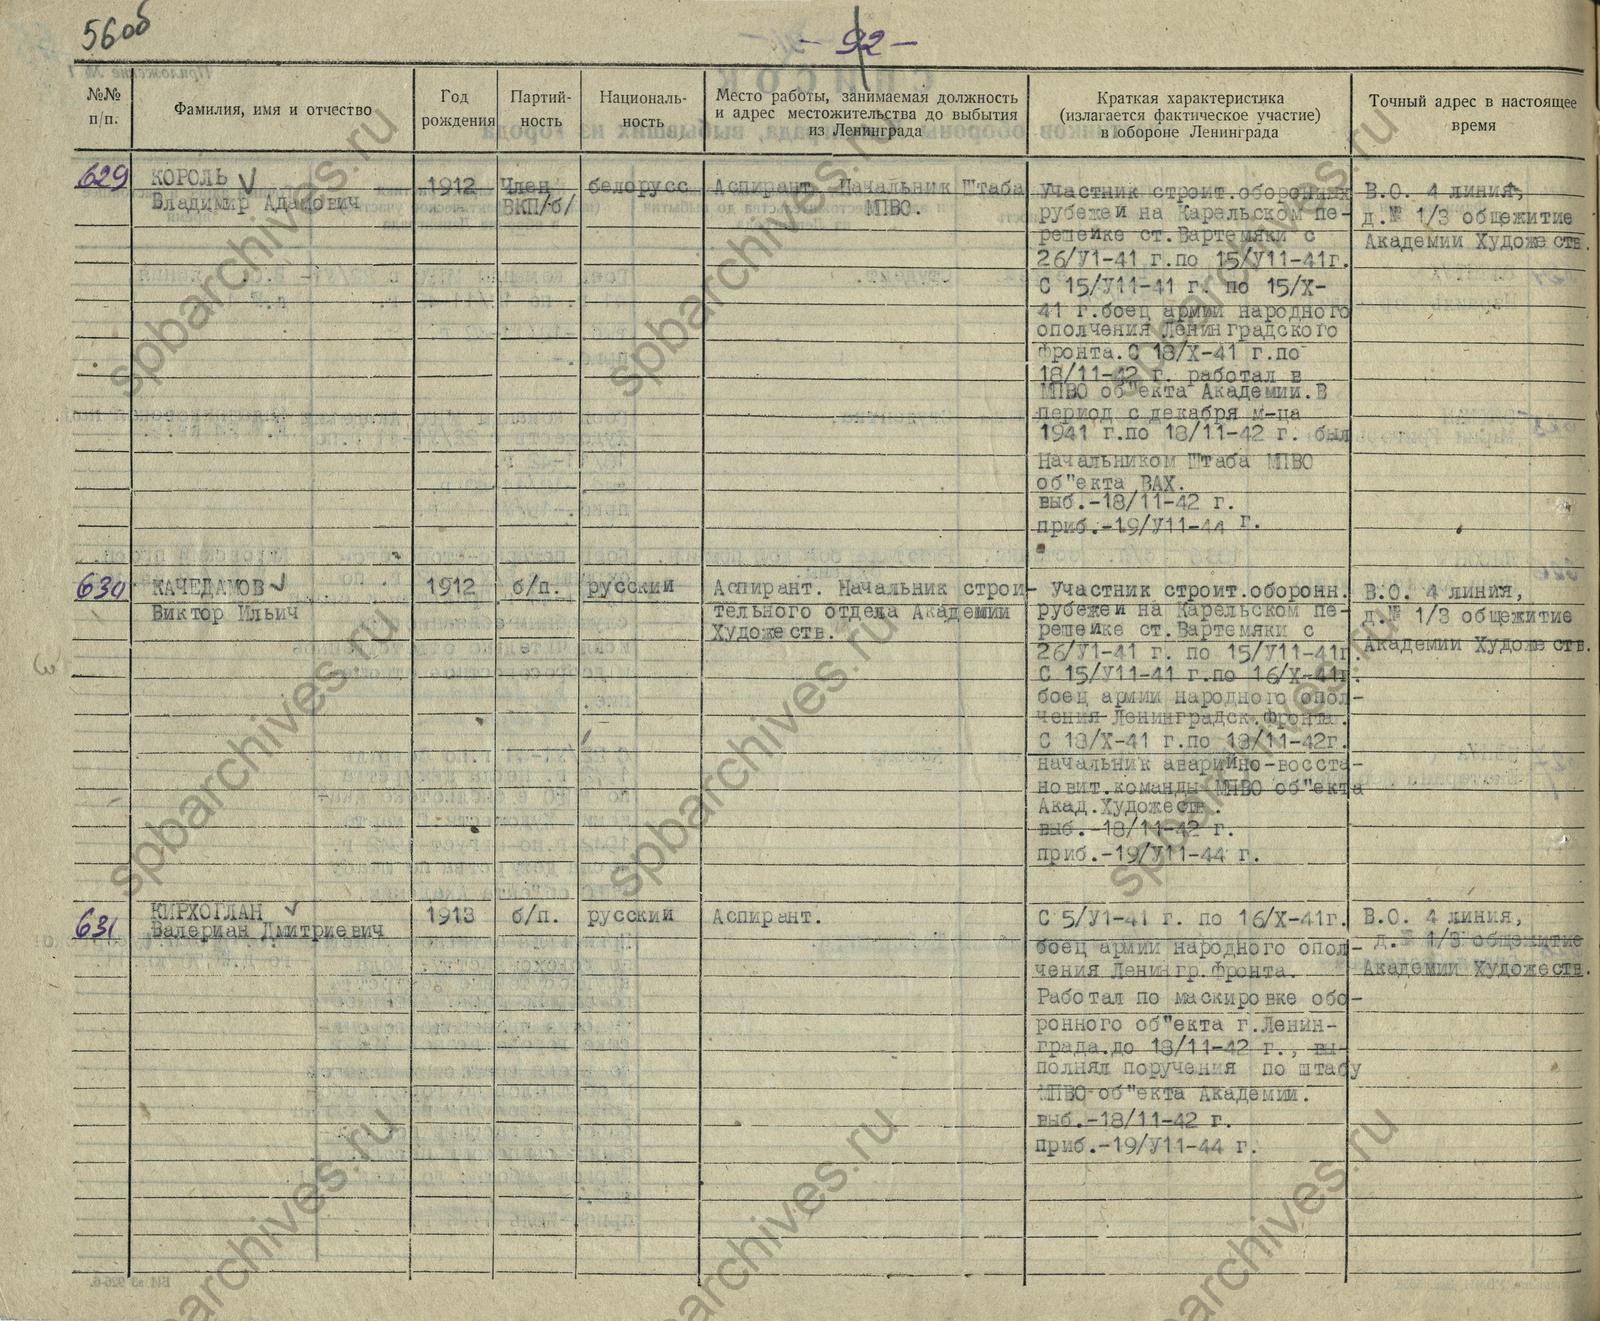 56об
- 92 -
№№ п/п.
Фамилия, имя и отчество
Год рождения
Партий-
ность
Националь-
ность
Место работы, занимаемая должность
и адрес местожительства до выбытия
из Ленинграда
Краткая характеристика
(излагается фактическое участие)
в обороне Ленинграда
Точный адрес в настоящее
время
629
КОРОЛЬ
Владимир Адамович
1912
Член
ВКП/б/
белорусс
Аспирант. Начальник Штаба
МПВО.
Участник строит.оборонных
рубежей на Карельском пе-
решейке ст.Вартемяки с
26/У1-41 г.по 15/У11-41г.
С 15/У11-41 г. по 15/Х-
41 г.боец армии народного
ополчения Ленинградского
фронта.С 18/Х-41 г.по
18/11-42 г. работал в
МПВО об"екта Академии.В
период с декабря м-ца
1941 г.по 18/11-42 г. был
Начальником Штаба МПВО
об"екта ВАХ.
выб.-18/11-42 г.
приб.-19/У11-44 г.
В.О. 4 линия,
д.№ 1/3 общежитие
Академии Художеств.
630
КАЧЕДАМОВ
Виктор Ильич
1912
б/п.
русский
Аспирант. Начальник строи-
тельного отдела Академии
Художеств.
Участник строит.оборонн.
рубежей на Карельском пе-
решейке ст.Вартемяки с
26/У1-41 г. по 15/У11-41г.
С 15/У11-41 г.по 16/Х-41г.
боец армии народного опол-
чения Ленинградск.фронта.
С 18/Х-41 г.по 18/11-42г.
начальник аварийно-восста-
новит.команды МПВО об"екта
Акад.Художеств
выб.-18/11-42 г.
приб.-19/У11-44 г.
В.О. 4 линия,
д.№ 1/3 общежитие
Академии Художеств.
631
КИРХОГЛАН
Валериан Дмитриевич
1913
б/п.
русский
Аспирант.
С 5/У1-41 г. по 16/Х-41г.
боец армии народного опол-
чения Ленингр.фронта.
Работал по маскировке обо-
ронного об"екта г.Ленин-
града.до 18/11-42 г., вы-
полнял поручения по штабу
МПВО об"екта Академии.
выб.-18/11-42 г.
приб.-19/У11-44 г.
В.О. 4 линия,
д.№ 1/3 общежитие
Академии Художеств.
spbarchives.ru
spbarchives.ru
spbarchives.ru
spbarchives.ru
spbarchives.ru
spbarchives.ru
spbarchives.ru
spbarchives.ru
spbarchives.ru